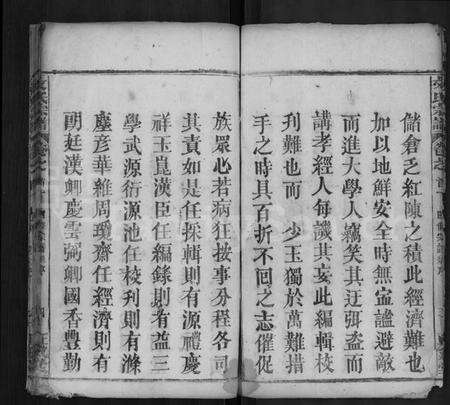 儲倉乏紅陳之積此經濟難也
加以地鮮安全時無寍謐避敵
而進大學人竊笑其迂弭盗而
講孝經人每譏其妄此編輯校
利難也而 少玉獨於萬難措
手之時具百折不回之志催促
族眾必若病狂按事分程各司
其責如是任採輯則有源禮慶
祥玉崑漢臣任編錄則有益三
學武源衍源池任校刋則有滌
塵彦華維周璜齋任經濟則有
朗廷漢卿慶雲弼卿國香豊勤